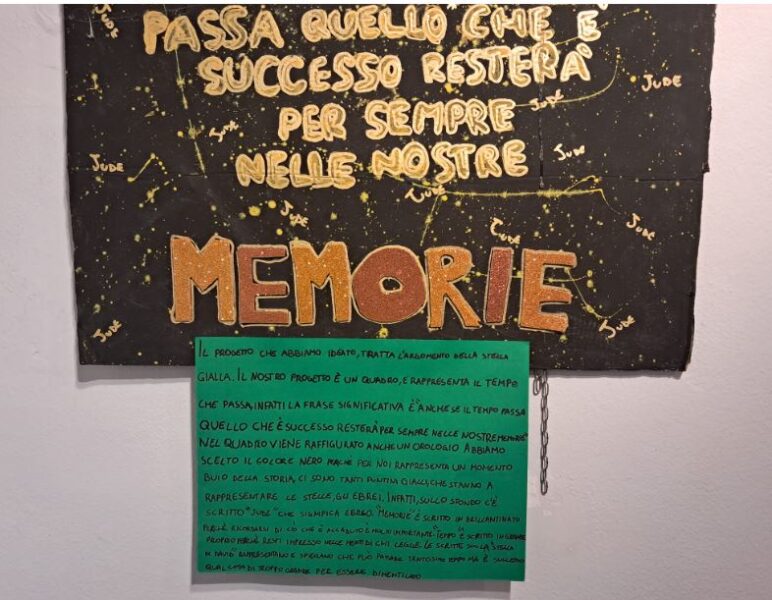 JUDE
PASSA QUELLO CHE È
SUCCESSO RESTERÀ
JUDE
PER SEMPRE
JUDE
JUDE
NELLE NOSTRE
JUDE
JUDE
JUDE
JUDE
JUDE
JUDE
MEMORIE
JUDE
JUDE
IL PROGETTO CHE ABBIAMO IDEATO, TRATTA L'ARGOMENTO DELLA STELLA
GIALLA. IL NOSTRO PROGETTO È UN QUADRO, E RAPPRESENTA IL TEMPO
CHE PASSA, INFATTI LA FRASE SIGNIFICATIVA È "ANCHE SE IL TEMPO PASSA
QUELLO CHE È SUCCESSO RESTERÀ PER SEMPRE NELLE NOSTRE MEMORIE"
NEL QUADRO VIENE RAFFIGURATO ANCHE UN OROLOGIO ABBIAMO
SCELTO IL COLORE NERO PERCHÉ PER NOI RAPPRESENTA UN MOMENTO
BUIO DELLA STORIA, CI SONO TANTI PUNTINI GIALLI, CHE STANNO A
RAPPRESENTARE LE STELLE, GLI EBREI. INFATTI, SULLO SFONDO C'È
SCRITTO "JUDE" CHE SIGNIFICA EBREO. "MEMORIE" È SCRITTO IN BRILLANTINATO
PERCHÉ RICORDARSI DI CIÒ CHE È ACCADUTO È MOLTO IMPORTANTE. "TEMPO" È SCRITTO IN GRANDE
PROPRIO PERCHÉ RESTI IMPRESSO NELLE MENTI DI CHI LEGGE. LE SCRITTE SULLA "STELLA
DI DAVID" RAPPRESENTANO E SPIEGANO CHE PUÒ PASSARE TANTISSIMO TEMPO MA È SUCCESSO
QUALCOSA DI TROPPO GRANDE PER ESSERE DIMENTICATO